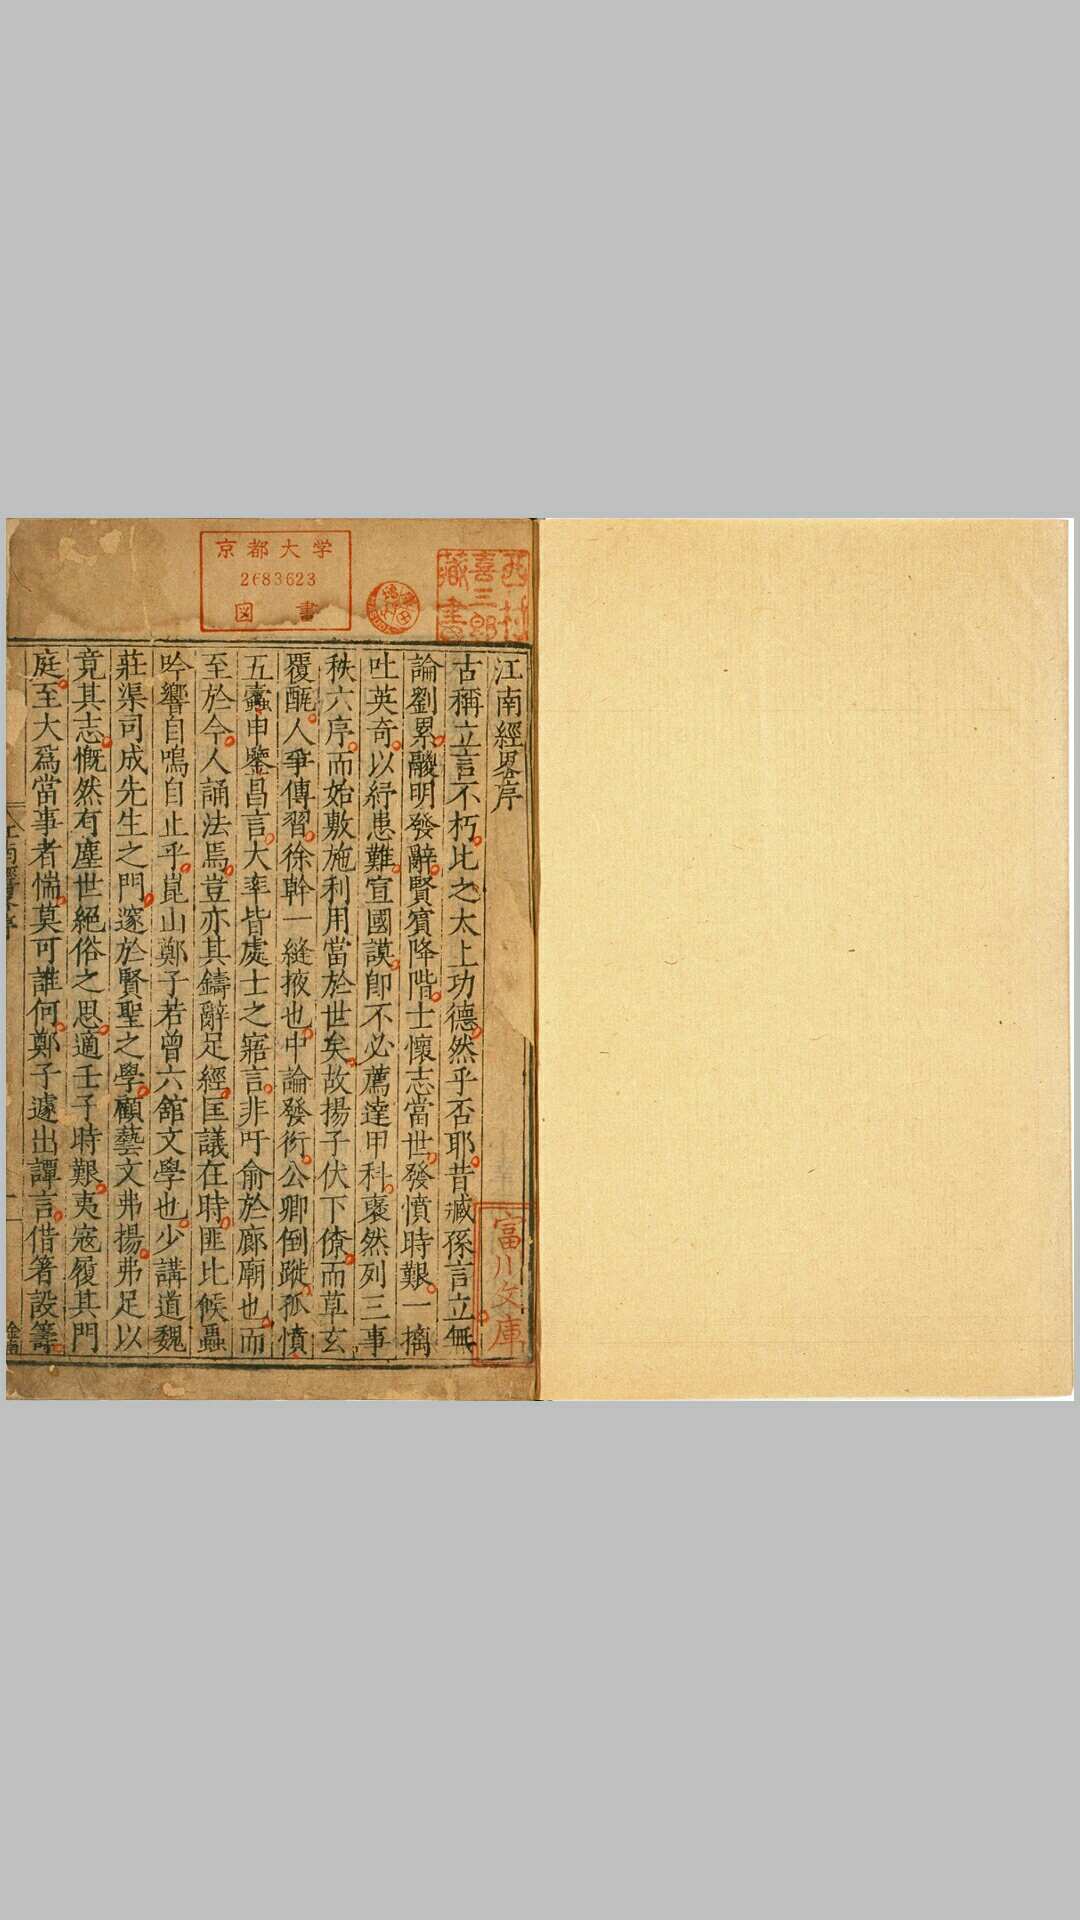 京都大学
2683623
図書
西村
喜三郎
藏書
富川文庫
江南經畧序
古稱立言不朽比之太上功德然乎否耶昔臧孫言立無
論劉累鬷明發辭賢賓降階士懷志當世發憤時艱一摛
吐英奇以紓患難宣國謨即不必薦達甲科褎然列三事
秩六序而始敷施利用當於世矣故揚子伏下僚而草玄
覆瓿人爭傳習徐幹一縫掖也中論發衒公卿倒蹝孤憤
五蠹申鑒昌言大率皆處士之寤言非吁俞於廊廟也而
至於今人誦法焉豈亦其鑄辭足經匡議在時匪比候蟲
吟響自鳴自止乎崑山鄭子若曾六舘文學也少講道魏
莊渠司成先生之門邃於賢聖之學顧藝文弗揚弗足以
竟其志慨然有塵世絕俗之思適壬子時艱夷寇履其門
庭至大爲當事者惴莫可誰何鄭子遽出譚言借箸設籌